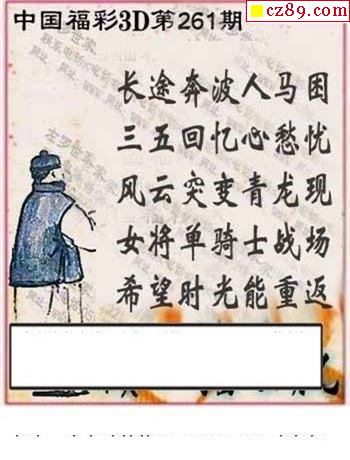 cz89.com
中国福彩3D第261期
长途奔波人马困
三五回忆心愁忧
风云突变青龙现
女将单骑士战场
希望时光能重返